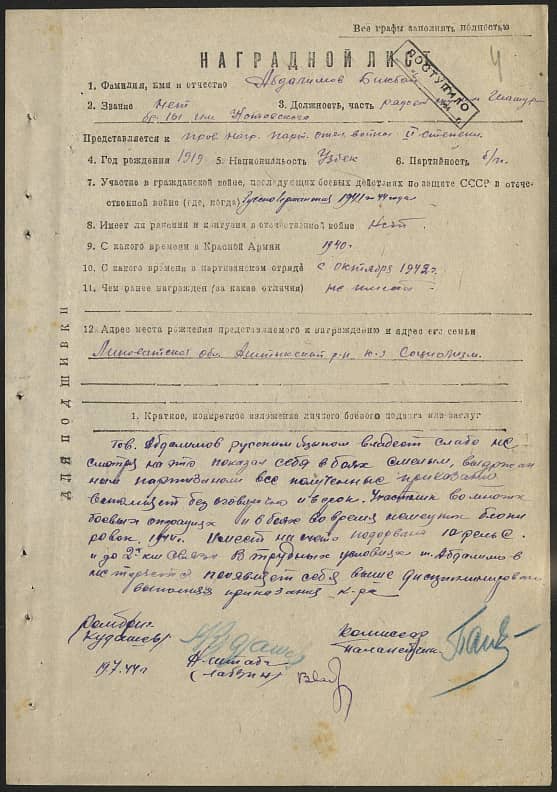 Все графы заполнять полностью
4
НАГРАДНОЙ ЛИС
ПОСТУПИЛО
1. Фамилия, имя и отчество Абдалимов
2. Звание нет 3. Должность, часть рядов
бр. 161 им. Котовского
Представляется к прав. нагр. парт. отеч. войны II степени
4. Год рождения 1919 5. Национальность Узбек 6. Партийность б/п.
7. Участие в гражданской войне, последующих боевых действиях по защите СССР в отече-
ственной войне (где, когда) 1941-44 года
8. Имеет ли ранения и контузия в отечественной войне Нет.
9. С какого времени в Красной Армии 1940г.
10. С какого времени в партизанском отряде с октября 1942г.
11. Чем ранее награжден (за какие отличия) не имеет
12. Адрес места рождения представляемого к награждению и адрес его семьи
обл. р-н к-з Социализм.
ДЛЯ ПОДШИВКИ
1. Краткое, конкретное изложение личного боевого подвига или заслуг
Тов. Абдалимов русским языком владеет слабо не
смотря на это показал себя в боях смелым, выдержан
ным партизаном все полученные приказания
выполняет без оговорочно и в срок. Участник во многих
боевых операциях и в боях во время немецких блоки
ровок 1944г. Имеет на счету подорвано 10 рельс.
и до 2х км связи. В трудных условиях т. Абдалимов
проявляет себя выше дисциплинирован
выполняя приказания к-ра
Комбриг
Кудашев
Комиссар
19.7.44г
Н. штаба